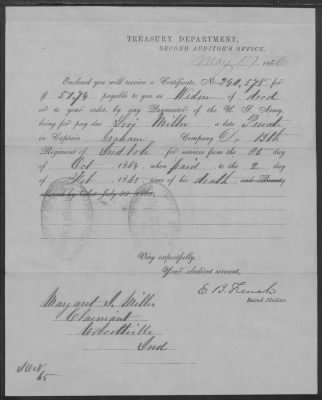 TREASURY DEPARTMENT,
SECOND AUDITOR'S OFFICE.
May 17, 186
Enclosed you will receive a Certificate, No 240,578 for
$ 51,74 payable to you as Widow of decd
or to your order, by any Paymaster of the U. S. Army,
being for pay due Miller a late Privt
in Captain Graham Company D, 13th
Regiment of Ind Vols. for services from the 25 day
of Oct 1864, when paid to the 2 day
of Feb 1865 time of his death and Bounty
Very respectfully,
Your obedient servant,
E. B. French
Second Auditor.
Margaret J. Miller
Claimant
Wolcottville
Ind
65